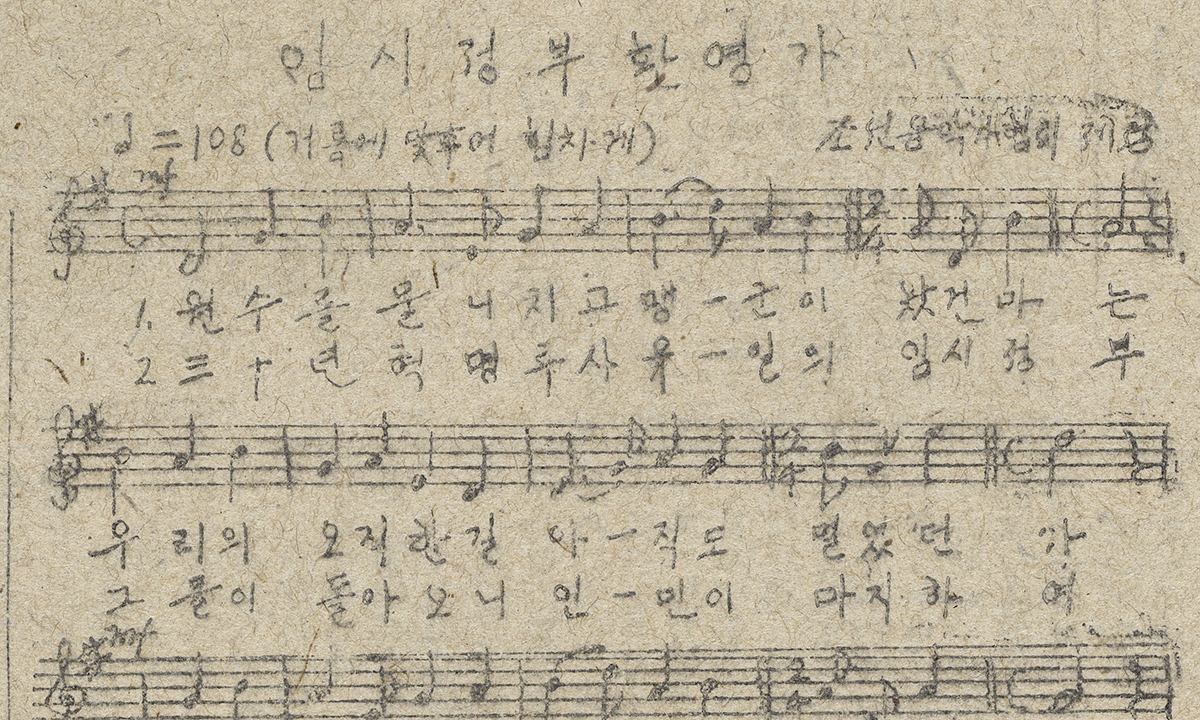 임시정부환영가
♩=108 (거름에 맞추어 힘차게)
mf
1. 원수를 물니치고 맹-군이 왔건마는
2 三十년 혁명투사 유-일의 임시정부
우리의 오직한길 아-직도 멀었던가
그들이 돌아오니 인-민이 마지하여
mf